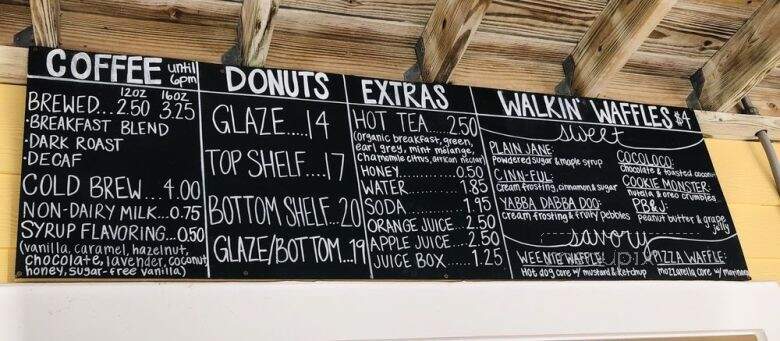 COFFEE until 6pm
12oz 16oz
BREWED...2.50 3.25
•BREAKFAST BLEND
•DARK ROAST
•DECAF
COLD BREW...4.00
NON-DAIRY MILK...0.75
SYRUP FLAVORING...0.50
(vanilla, caramel, hazelnut,
chocolate, lavender, coconut
honey, sugar-free vanilla)
DONUTS
GLAZE.....14
TOP SHELF....17
BOTTOM SHELF...20
GLAZE/BOTTOM...19
EXTRAS
HOT TEA....2.50
(organic breakfast, green,
earl grey, mint mélange,
chamomile citrus, african nectar)
HONEY............0.50
WATER...........1.85
SODA............1.95
ORANGE JUICE...2.50
APPLE JUICE....2.50
JUICE BOX.....1.25
WALKIN' WAFFLES $4
sweet
PLAIN JANE:
Powdered sugar & maple syrup
CINN-FUL:
Cream frosting, cinnamon & sugar
YABBA DABBA DOO:
Cream frosting & fruity pebbles
COCOLOCO:
Chocolate & toasted coconut
COOKIE MONSTER:
nutella & oreo crumbles
PB&J:
peanut butter & grape
jelly
savory
WEENIE WAFFLE:
Hot dog core w/ mustard & ketchup
PIZZA WAFFLE:
mozzarella core w/ marinara